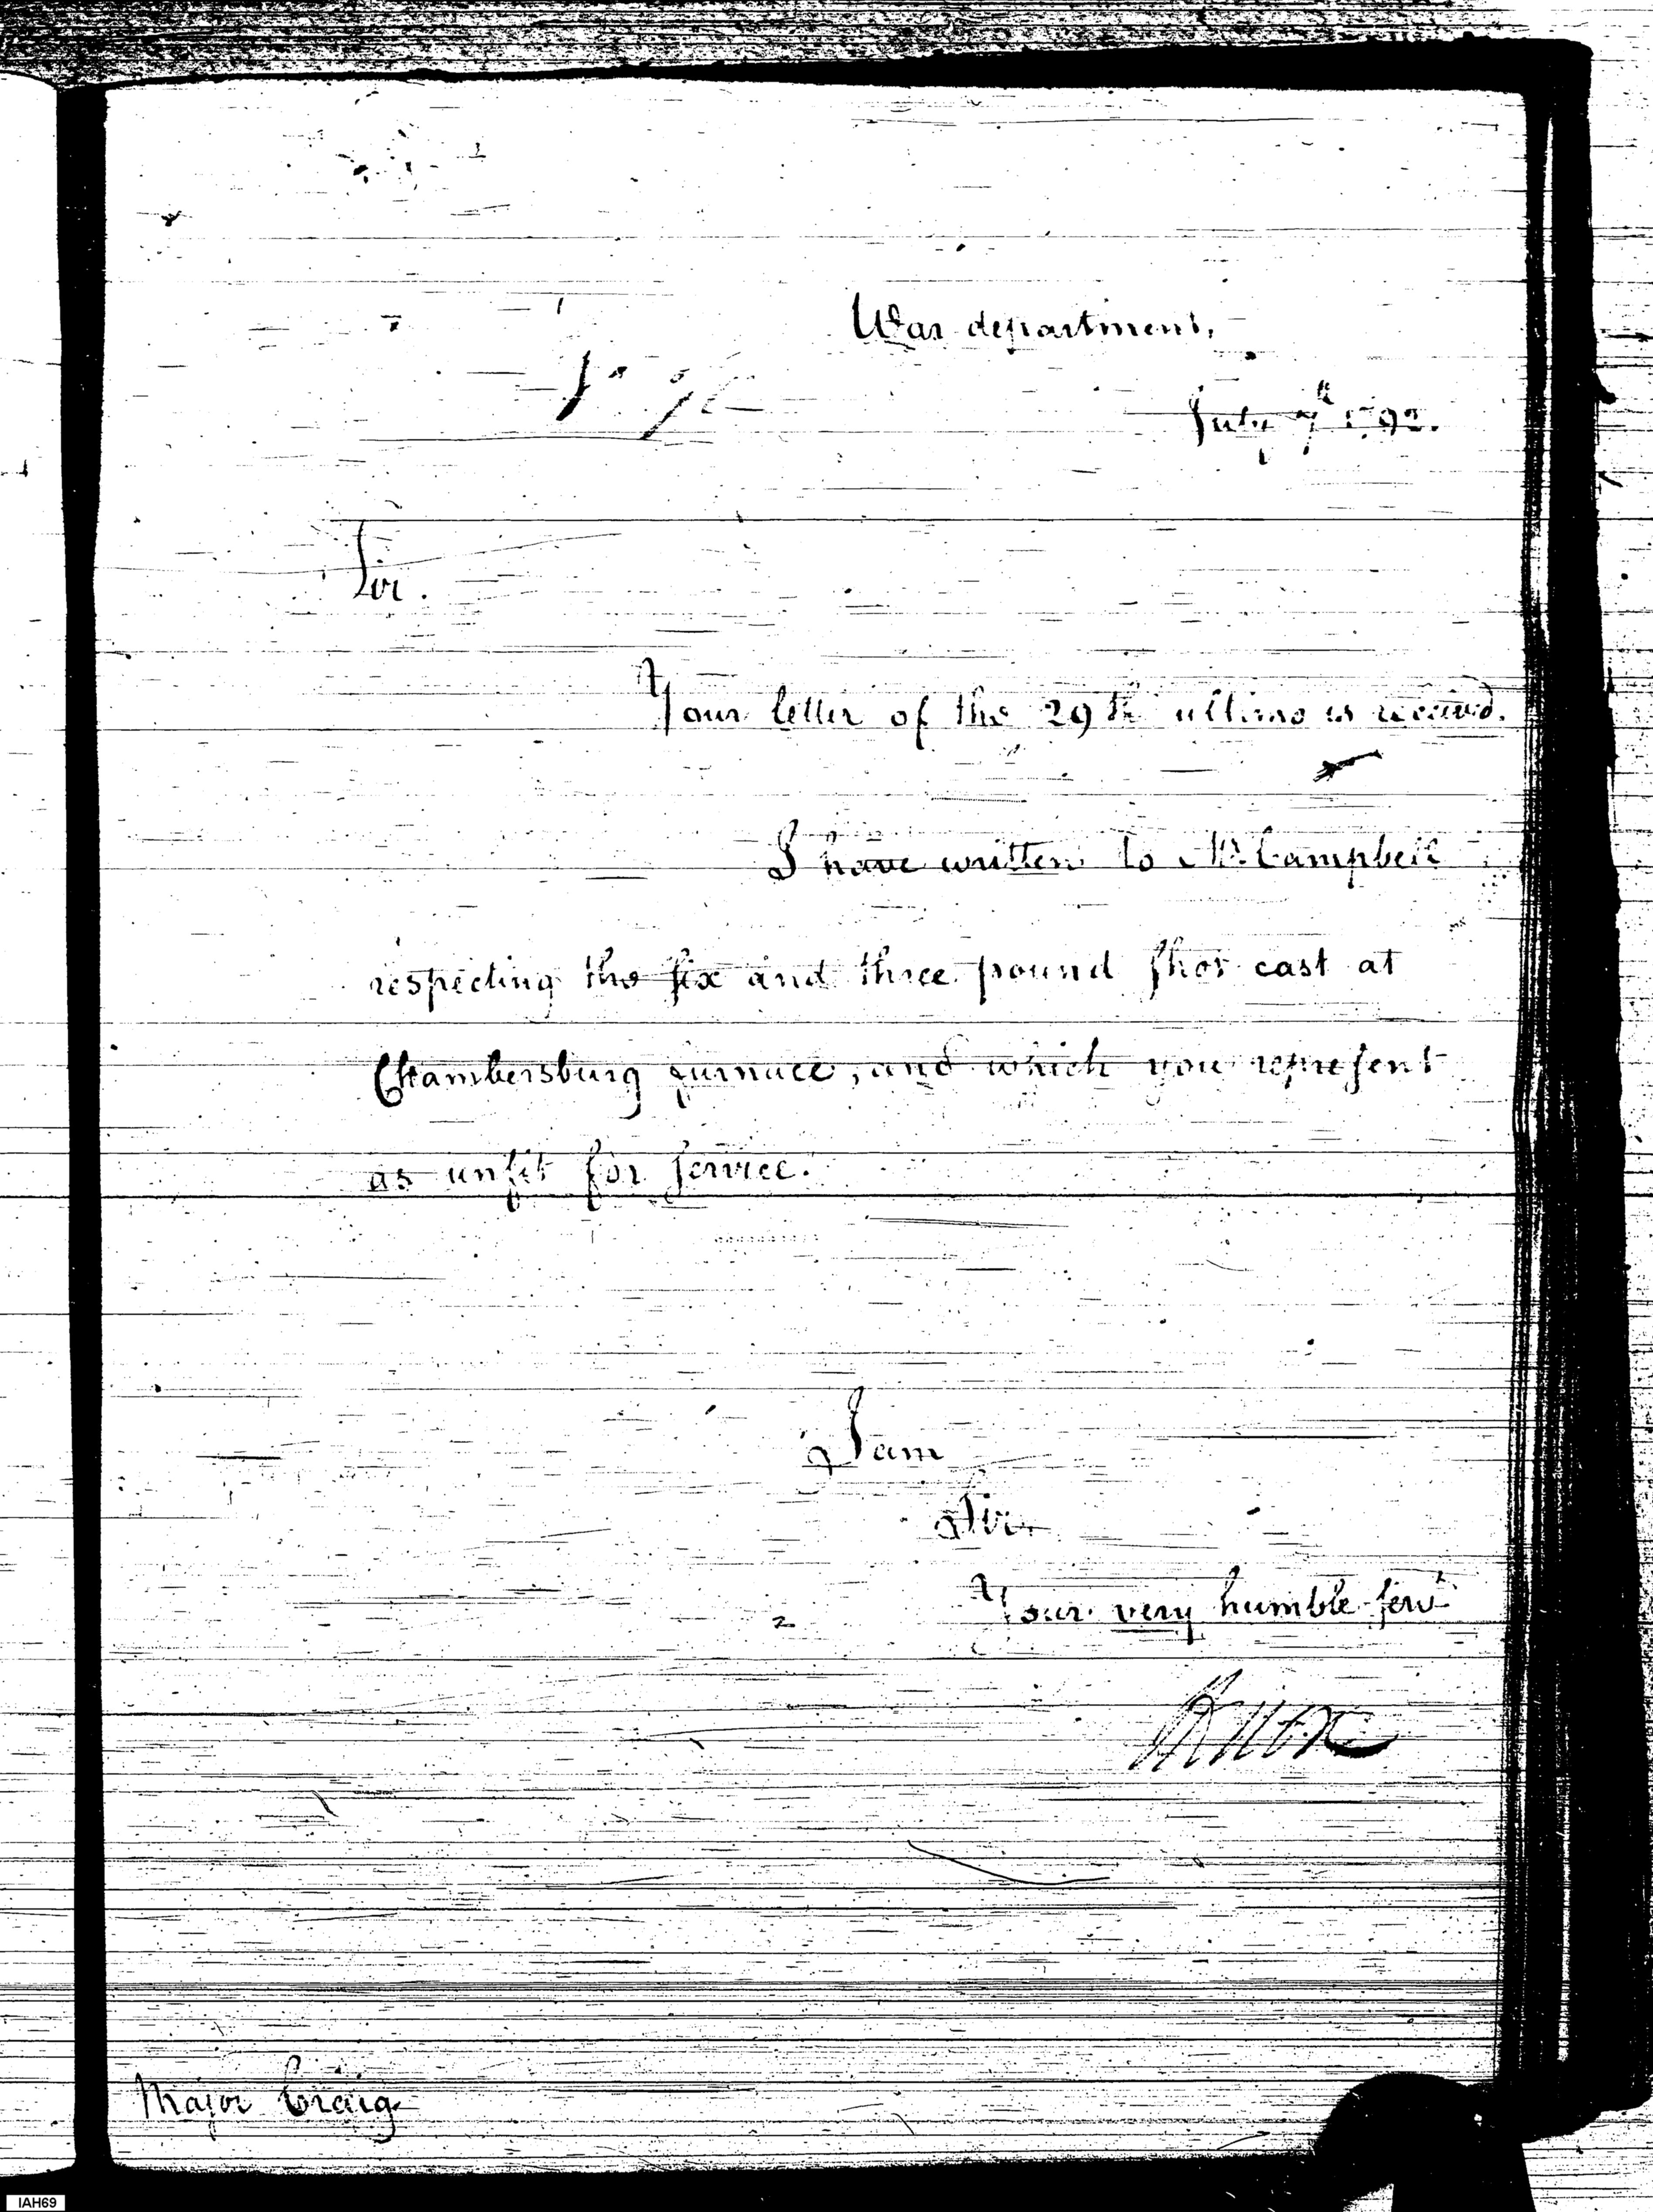 War department,
July 7th 1792.
Sir.
Your letter of the 29th ultimo is received.
I have written to Mr. Campbell
respecting the six and three pound shot cast at
Chambersburg furnace, and which you represent
as unfit for service.
I am
Sir
Your very humble servt
HKnox
Major Craig
IAH69